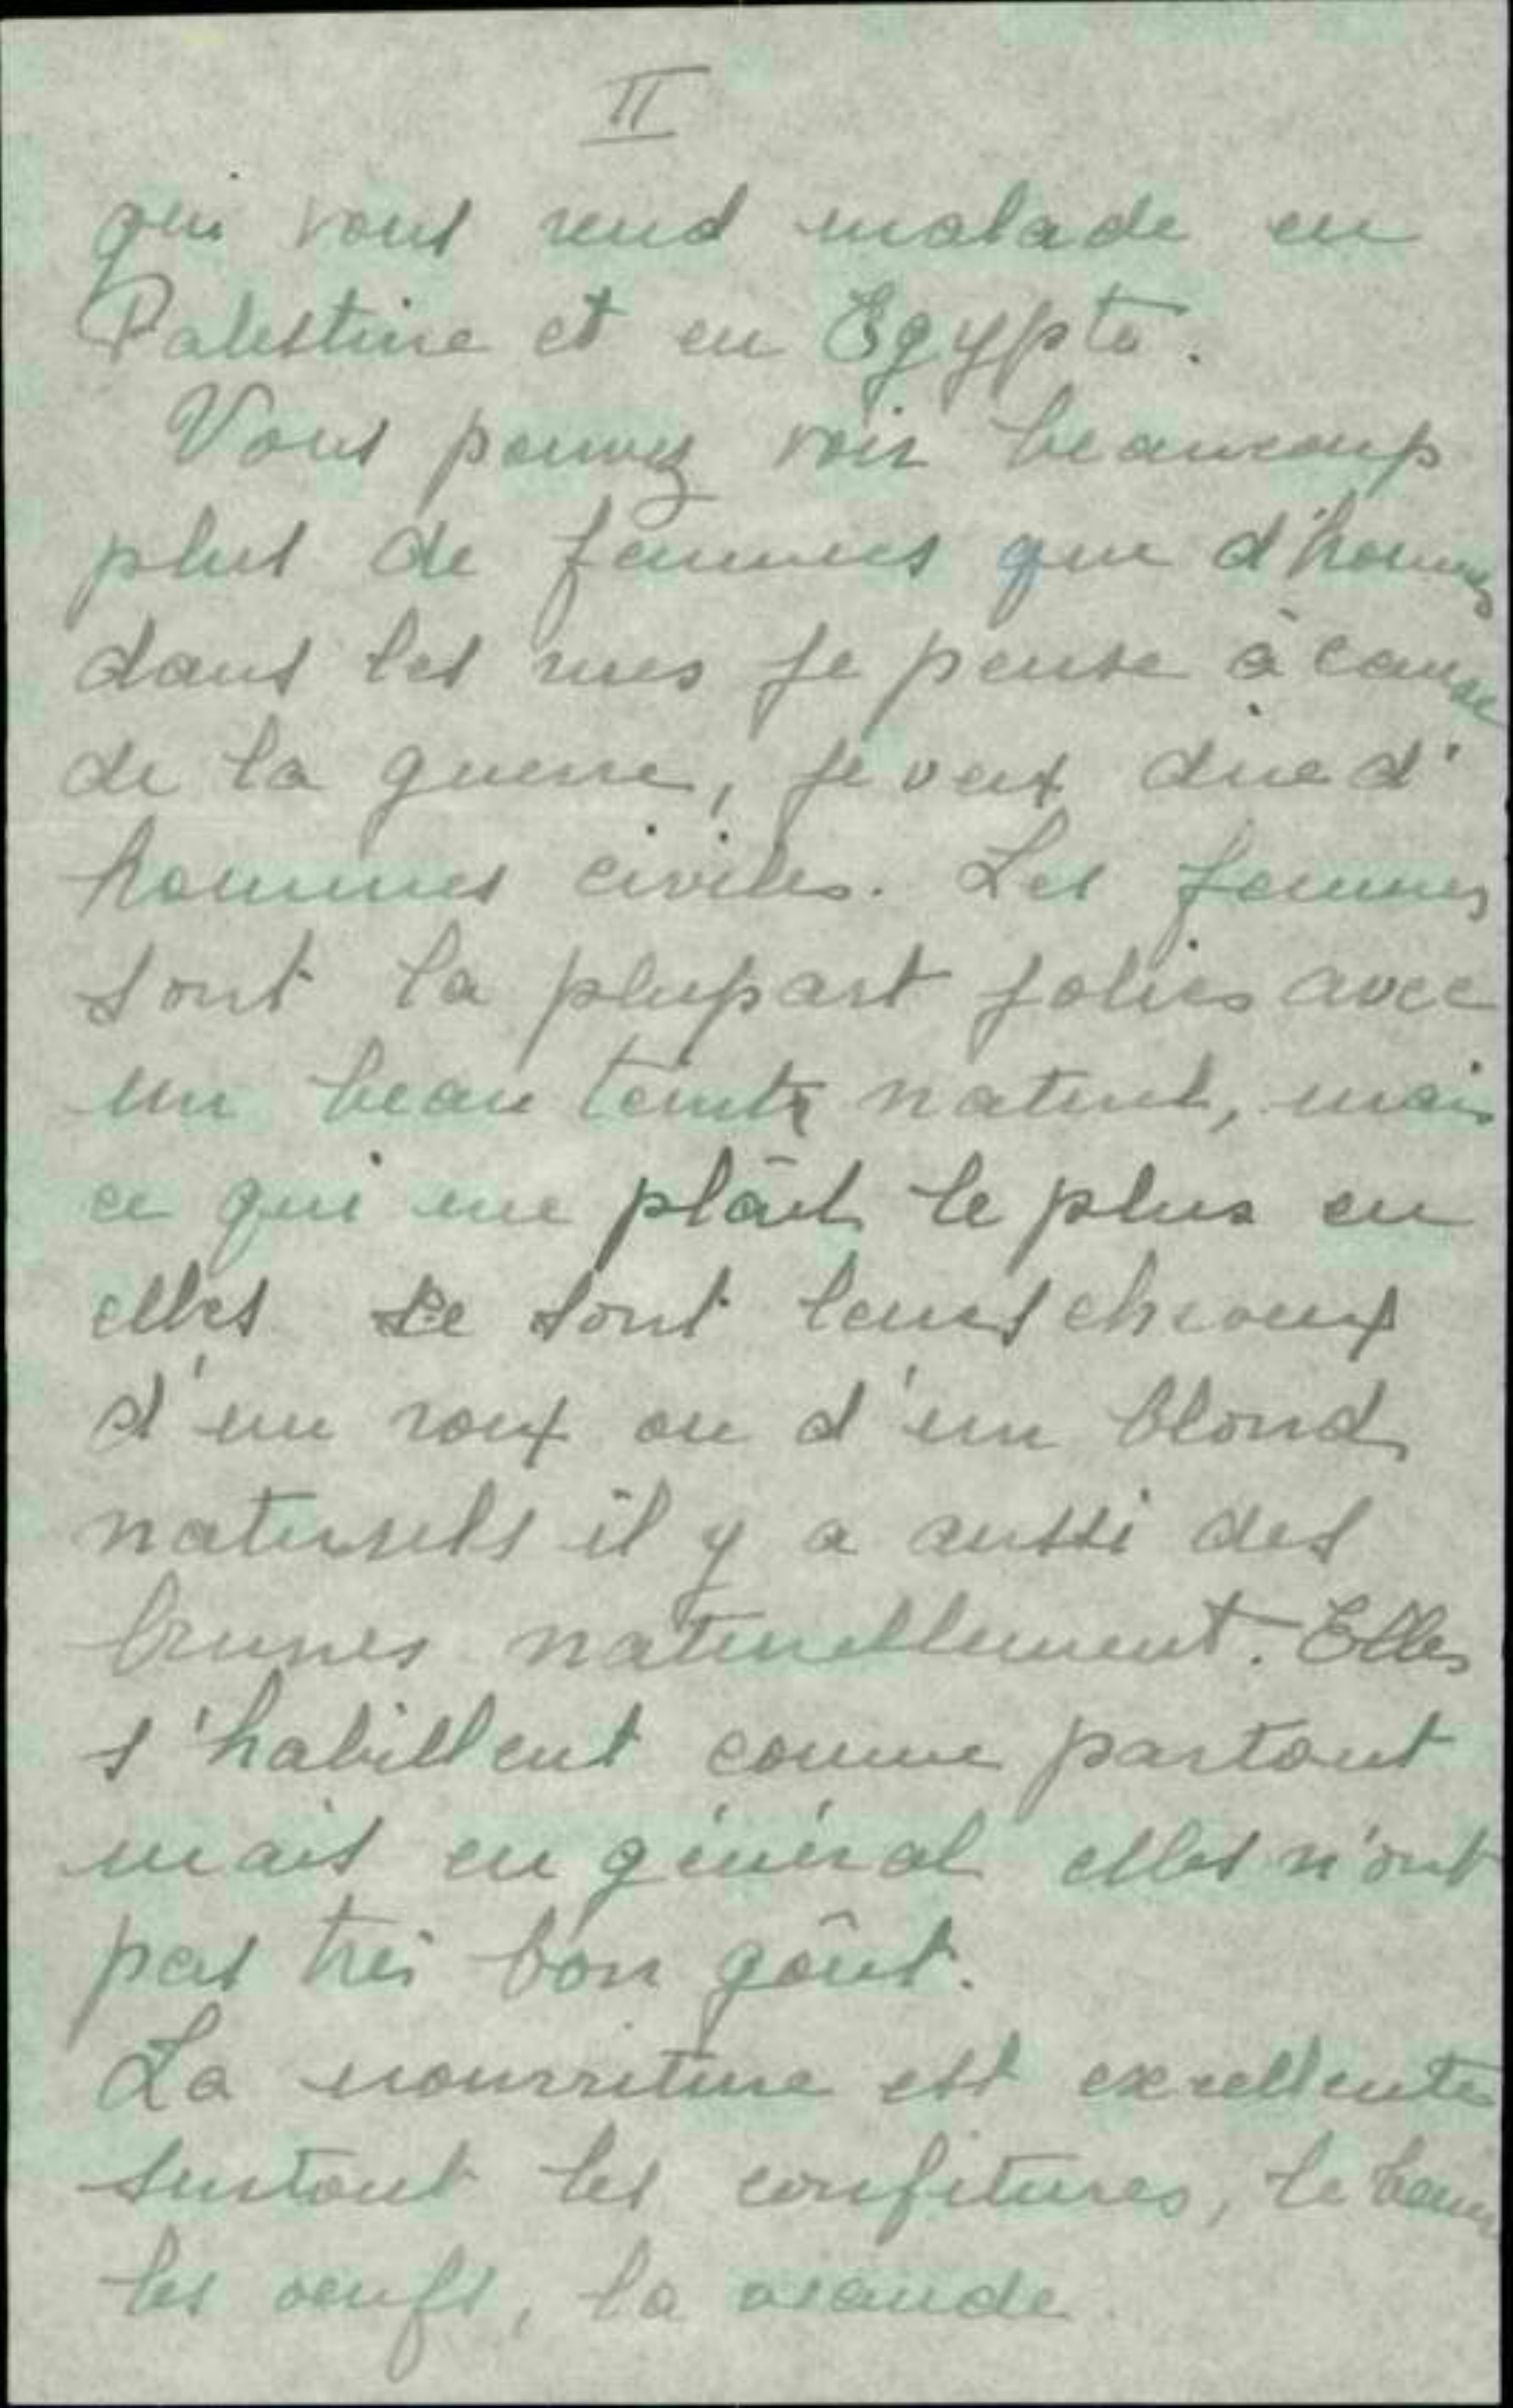 II
qui vous rend malade en
Palestine et en Egypte.
Vous pouvez voir beaucoup
plus de femmes que d'hommes
dans les rues je pense à cause
de la guerre, je veux dire d'
hommes civiles. Les femmes
sont la plupart jolies avec
un beau teint naturel, mais
ce qui me plâit le plus en
elles se sont leurs cheveux
d'un roux ou d'un blond
naturels il y a aussi des
brunes naturellement. Elles
s'habillent comme partout
mais en général elles n'ont
pas très bon goût.
La nourriture est excellente
surtout les confitures, le beurre
les oeufs, la viande.